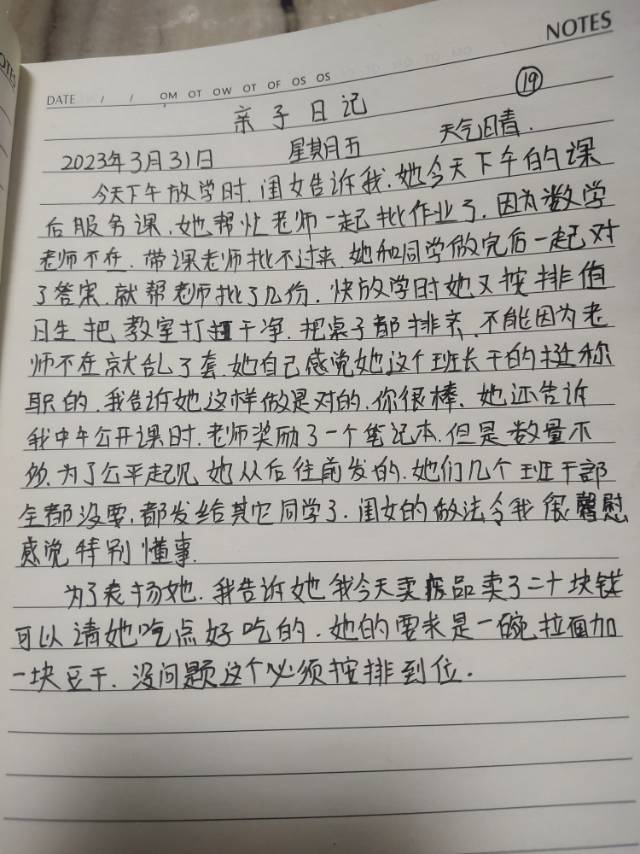 NOTES
DATE / / OM OT OW OT OF OS OS
⑲
亲子日记
2023年3月31日 星期五 天气晴.
今天下午放学时.闺女告诉我.她今天下午的课
后服务课.她帮忙老师一起批作业了.因为数学
老师不在.带课老师批不过来.她和同学做完后一起对
了答案.就帮老师批了几份.快放学时她又按排值
日生把教室打扫干净.把桌子都排齐.不能因为老
师不在就乱了套.她自己感觉她这个班长干的挺称
职的.我告诉她这样做是对的.你很棒.她还告诉
我中午公开课时.老师奖励了一个笔记本.但是数量不
够.为了公平起见她从后往前发的.她们几个班干部
全都没要.都发给其它同学了.闺女的做法令我很慰
感觉特别懂事.
为了表扬她.我告诉她我今天卖废品卖了二十块钱
可以请她吃点好吃的.她的要求是一碗拉面加
一块豆干.没问题这个必须按排到位.